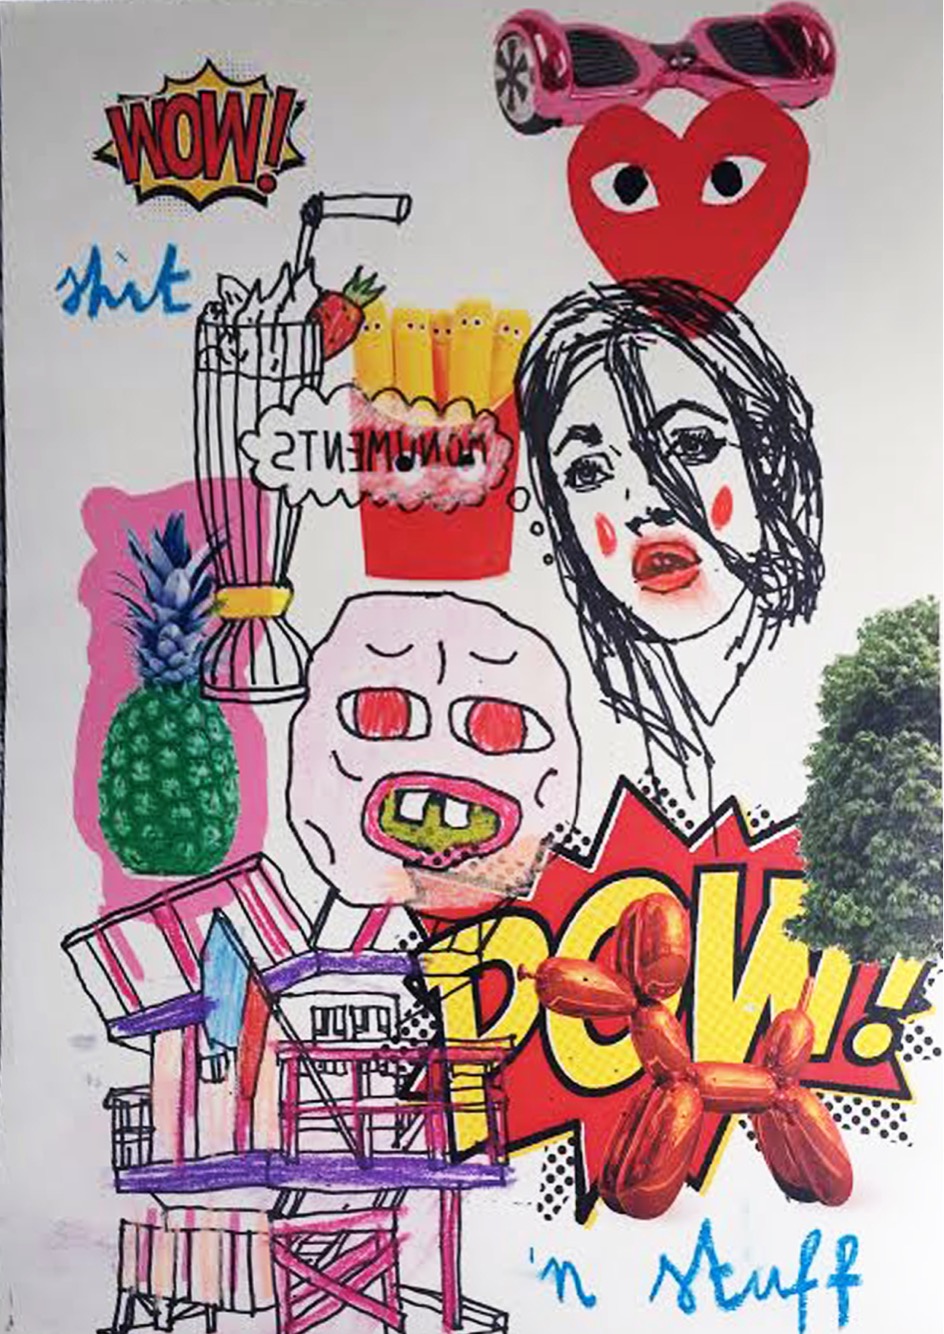 WOW!
shit
MONUMENTS
POW!!
'n stuff